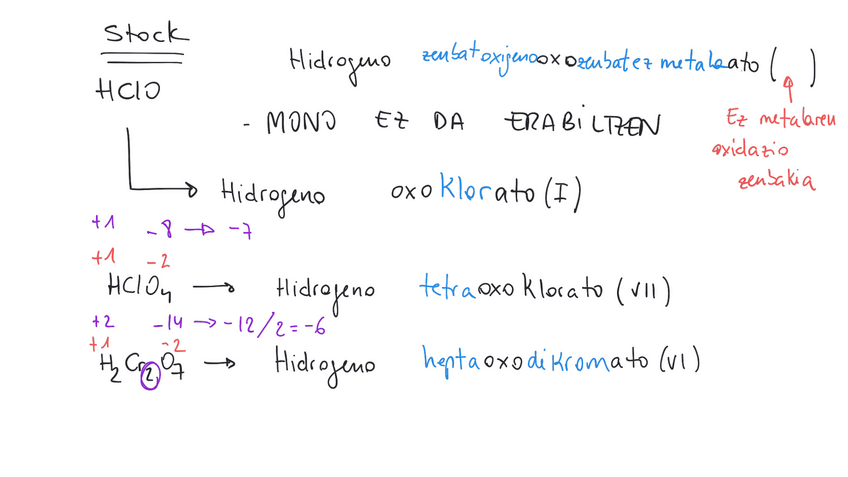 Stock
Hidrogeno zenbat oxigeno oxo zenbat ez metala ato ( )
HClO
- MONO EZ DA ERABILTZEN
Ez metalaren
oxidazio
zenbakia
Hidrogeno oxoklorato (I)
+1 -8 → -7
+1 -2
HClO4 → Hidrogeno tetraoxoklorato (VII)
+2 -14 → -12/2 = -6
+1 -2
H2Cr2O7 → Hidrogeno heptaoxodikromato (VI)